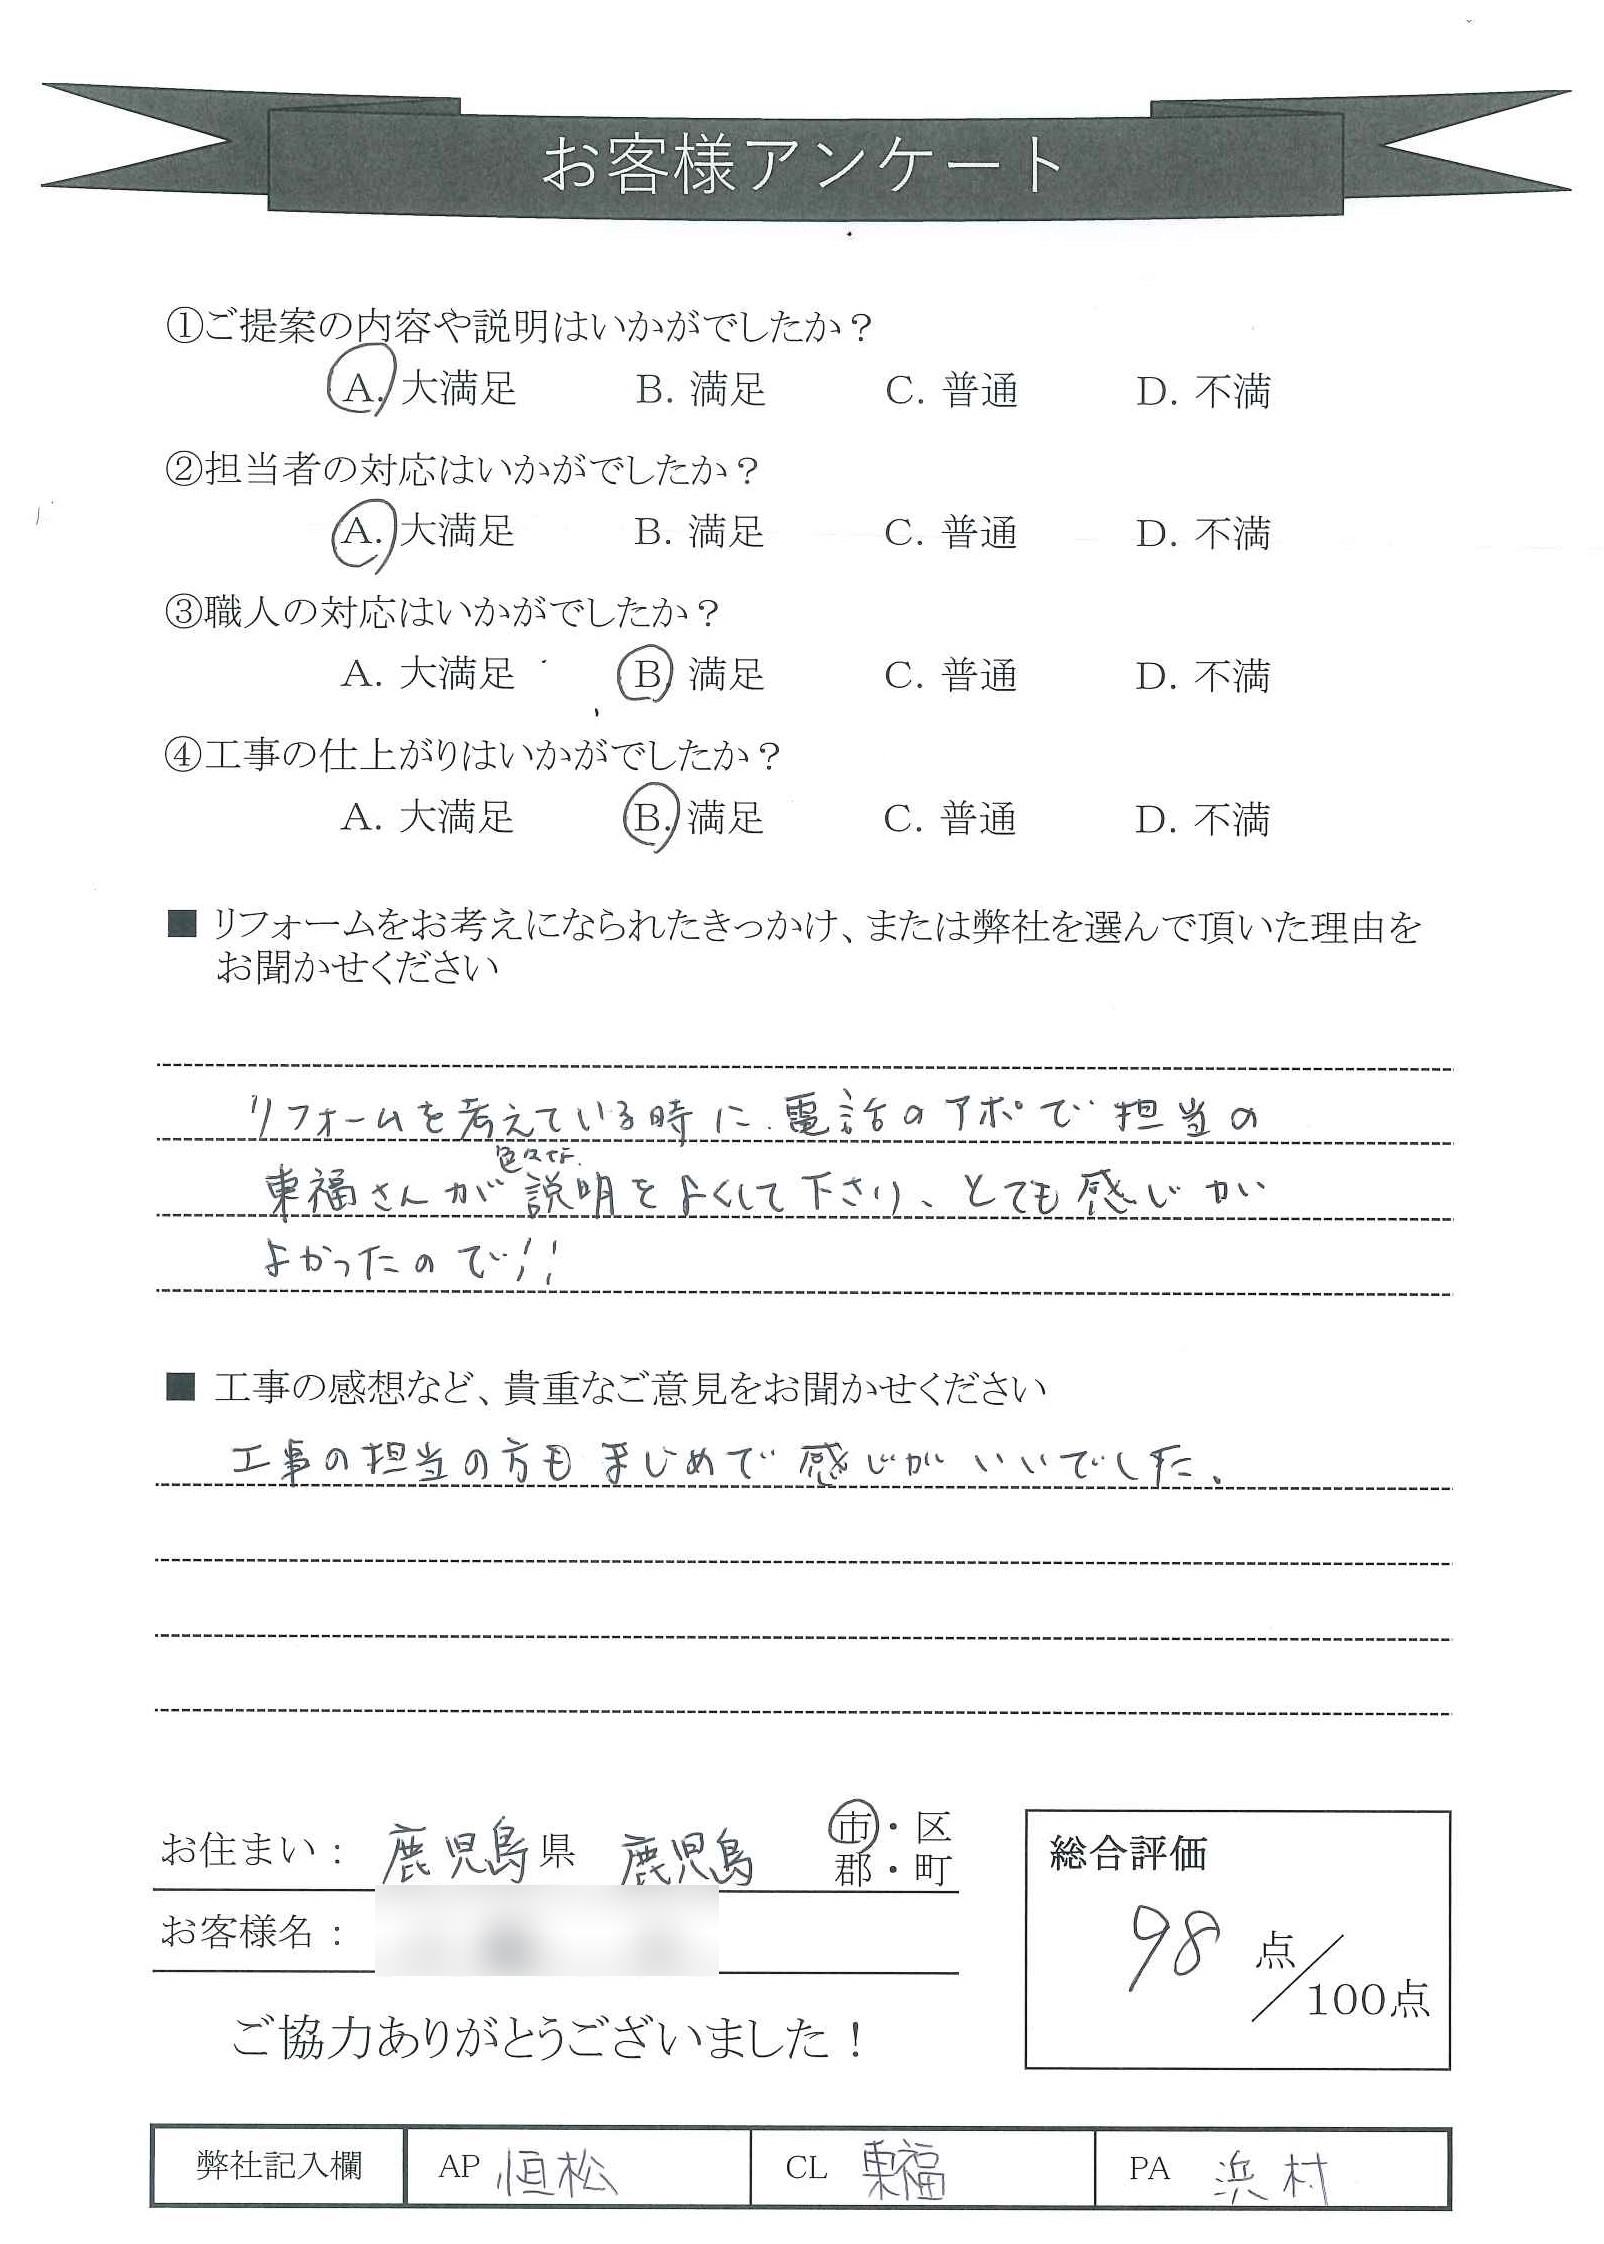 お客様アンケート
①ご提案の内容や説明はいかがでしたか？
A. 大満足 B. 満足 C. 普通 D. 不満
②担当者の対応はいかがでしたか？
A. 大満足 B. 満足 C. 普通 D. 不満
③職人の対応はいかがでしたか？
A. 大満足 B. 満足 C. 普通 D. 不満
④工事の仕上がりはいかがでしたか？
A. 大満足 B. 満足 C. 普通 D. 不満
■ リフォームをお考えになられたきっかけ、または弊社を選んで頂いた理由を
お聞かせください
リフォームを考えている時に、電話のアポで担当の
東福さんが色々な説明をよくして下さり、とても感じが
よかったので!!
■ 工事の感想など、貴重なご意見をお聞かせください
工事の担当の方もまじめで感じがいいでした。
お住まい： 鹿児島県 鹿児島 市・区
郡・町
お客様名：
総合評価
98 点／100点
ご協力ありがとうございました！
弊社記入欄 AP 恒松 CL 東福 PA 浜村